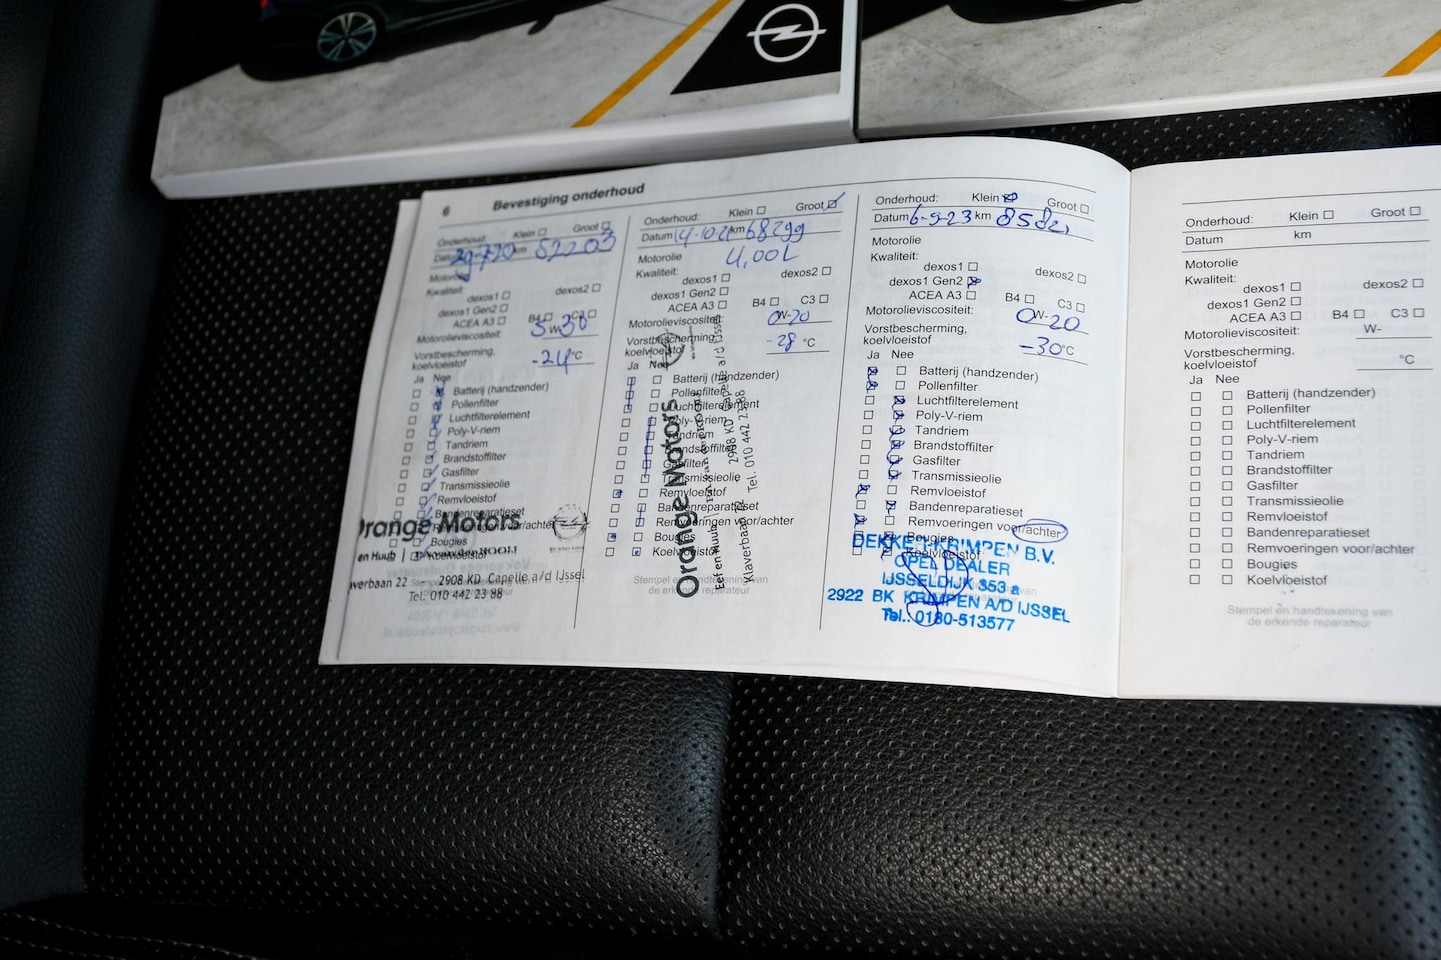 6 Bevestiging onderhoud
Onderhoud: Klein Groot
52203
Motorolie
Kwaliteit:
dexos1 dexos2
dexos1 Gen2
ACEA A3 B4 C3
Motorolieviscositeit: 5 W- 30
Vorstbescherming, koelvloeistof -24 °C
Ja Nee
Batterij (handzender)
Pollenfilter
Luchtfilterelement
Poly-V-riem
Tandriem
Brandstoffilter
Gasfilter
Transmissieolie
Remvloeistof
Bandenreparatieset
Remvoeringen voor/achter
Bougies
Koelvloeistof
Orange Motors
2908 KD Capelle a/d IJssel
Tel. 010 442 23 88
Onderhoud: Klein Groot
Datum 14-10-21 km 68299
Motorolie 4,00L
Kwaliteit:
dexos1 dexos2
dexos1 Gen2
ACEA A3 B4 C3
Motorolieviscositeit: 0 W- 20
Vorstbescherming, koelvloeistof -28 °C
Ja Nee
Batterij (handzender)
Pollenfilter
Luchtfilterelement
Poly-V-riem
Tandriem
Brandstoffilter
Gasfilter
Transmissieolie
Remvloeistof
Bandenreparatieset
Remvoeringen voor/achter
Bougies
Koelvloeistof
Stempel en handtekening van
de erkende reparateur
Orange Motors
Klaverbaan 22
2908 KD Capelle a/d IJssel
Tel. 010 442 23 88
Onderhoud: Klein Groot
Datum 6-9-23 km
Motorolie
Kwaliteit:
dexos1 dexos2
dexos1 Gen2
ACEA A3 B4 C3
Motorolieviscositeit: 0 W- 20
Vorstbescherming,
koelvloeistof -30 °C
Ja Nee
Batterij (handzender)
Pollenfilter
Luchtfilterelement
Poly-V-riem
Tandriem
Brandstoffilter
Gasfilter
Transmissieolie
Remvloeistof
Bandenreparatieset
Remvoeringen voor/achter
Bougies
Koelvloeistof
DEKKER KRIMPEN B.V.
OPEL DEALER
IJSSELDIJK 353 a
2922 BK KRIMPEN A/D IJSSEL
Tel.: 0180-513577
Onderhoud: Klein Groot
Datum km
Motorolie
Kwaliteit:
dexos1 dexos2
dexos1 Gen2
ACEA A3 B4 C3
Motorolieviscositeit: W-
Vorstbescherming,
koelvloeistof °C
Ja Nee
Batterij (handzender)
Pollenfilter
Luchtfilterelement
Poly-V-riem
Tandriem
Brandstoffilter
Gasfilter
Transmissieolie
Remvloeistof
Bandenreparatieset
Remvoeringen voor/achter
Bougies
Koelvloeistof
Stempel en handtekening van
de erkende reparateur